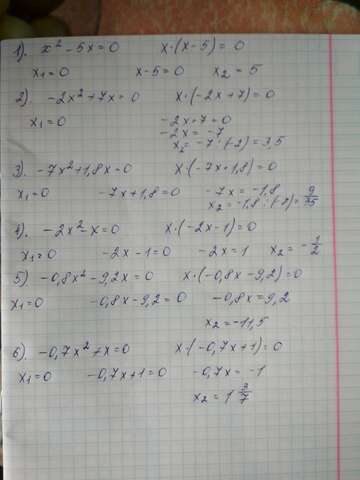 1). x² - 5x = 0 x·(x - 5) = 0
x₁ = 0 x - 5 = 0 x₂ = 5
2) -2x² + 7x = 0 x·(-2x + 7) = 0
x₁ = 0 -2x + 7 = 0
-2x = -7
x₂ = -7 : (-2) = 3,5
3) -7x² + 1,8x = 0 x·(-7x + 1,8) = 0
x₁ = 0 -7x + 1,8 = 0 -7x = -1,8
x₂ = -1,8 : (-7) = 9/35
4). -2x² - x = 0 x·(-2x - 1) = 0
x₁ = 0 -2x - 1 = 0 -2x = 1 x₂ = -1/2
5) -0,8x² - 9,2x = 0 x·(-0,8x - 9,2) = 0
x₁ = 0 -0,8x - 9,2 = 0 -0,8x = 9,2
x₂ = -11,5
6). -0,7x² + x = 0 x·(-0,7x + 1) = 0
x₁ = 0 -0,7x + 1 = 0 -0,7x = -1
x₂ = 1 3/7